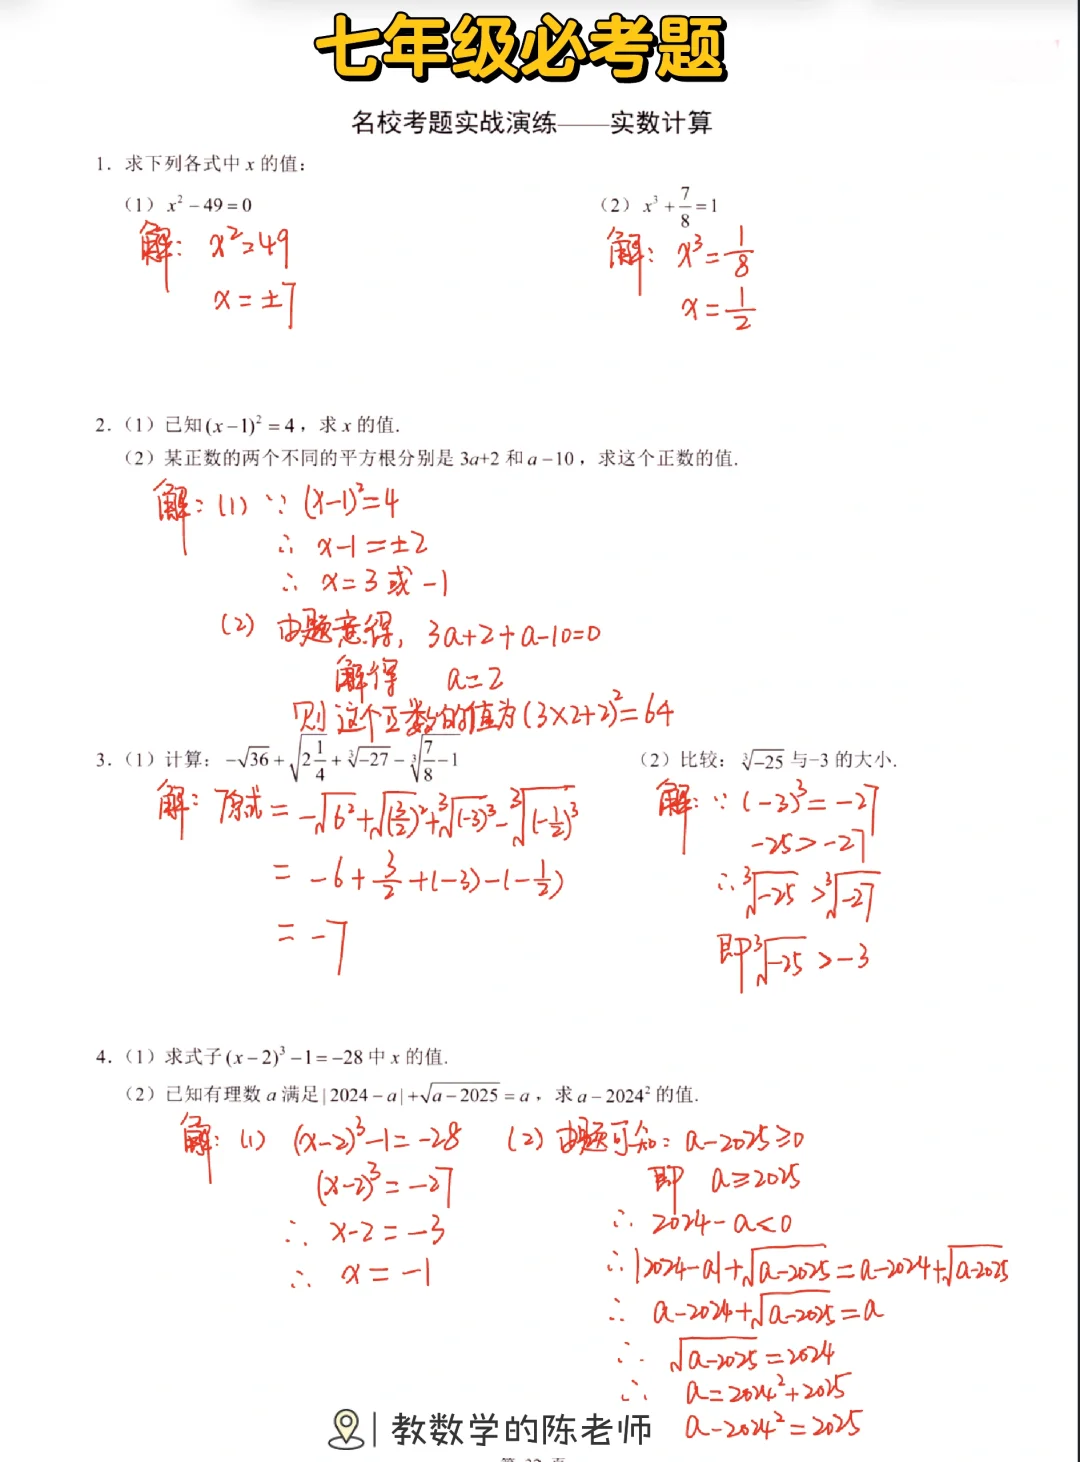 七年级必考题
名校考题实战演练——实数计算
1. 求下列各式中 x 的值:
(1) x² − 49 = 0
(2) x³ + 7/8 = 1
解: x²=49
x = ±7
解: x³ = 1/8
x = 1/2
2. (1) 已知 (x−1)² = 4，求 x 的值.
(2) 某正数的两个不同的平方根分别是 3a+2 和 a−10，求这个正数的值.
解: (1) ∵ (x−1)²=4
∴ x−1=±2
∴ x=3 或 −1
(2) 由题意得, 3a+2+a−10=0
解得 a=2
则这个正数的值为(3×2+2)²=64
3. (1) 计算: −√36 + √(2 1/4) + ∛−27 − ∛(7/8 − 1)
(2) 比较: ∛−25 与−3 的大小.
解: 原式 = −√6² + √(3/2)² + ∛(−3)³ − ∛(−1/2)³
= −6 + 3/2 + (−3) − (−1/2)
= −7
解: ∵ (−3)³ = −27
−25 > −27
∴ ∛−25 > ∛−27
即 ∛−25 > −3
4. (1) 求式子 (x−2)³ −1 = −28 中 x 的值.
(2) 已知有理数 a 满足 |2024−a| + √(a−2025) = a，求 a−2024² 的值.
解: (1) (x−2)³−1=−28
(x−2)³ = −27
∴ x−2 = −3
∴ x = −1
(2) 由题可知: a−2025≥0
即 a≥2025
∴ 2024−a<0
∴ |2024−a|+√(a−2025) = a−2024+√(a−2025)
∴ a−2024+√(a−2025) = a
∴ √(a−2025) = 2024
∴ a=2024²+2025
a−2024²=2025
教数学的陈老师